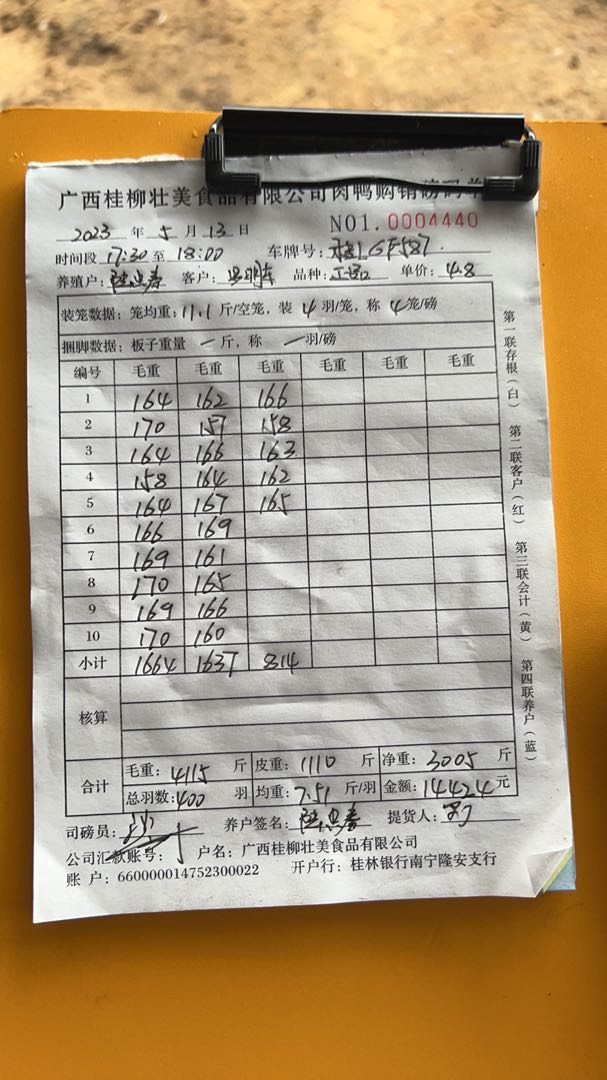 广西桂柳壮美食品有限公司肉鸭购销磅码单
NO1. 0004440
2023 年 5 月 13 日
时间段 17:30 至 18:00 车牌号:
养殖户: 客户: 品种: 单价: 4.8
装笼数据: 笼均重: 11.1 斤/空笼, 装 4 羽/笼, 称 4 笼/磅
捆脚数据: 板子重量 — 斤, 称 — 羽/磅
编号 毛重 毛重 毛重 毛重 毛重 毛重
1 164 162 166
2 170 157 158
3 164 166 163
4 158 164 162
5 164 167 165
6 166 169
7 169 161
8 170 165
9 169 166
10 170 160
小计 1664 1637 814
核算
合计 毛重: 4115 斤 皮重: 1110 斤 净重: 3005 斤
总羽数: 400 羽 均重: 7.51 斤/羽 金额: 14424 元
司磅员: 养户签名: 提货人:
公司汇款账号: 户名: 广西桂柳壮美食品有限公司
账 户: 660000014752300022 开户行: 桂林银行南宁隆安支行
第一联存根(白) 第二联客户(红) 第三联会计(黄) 第四联养户(蓝)